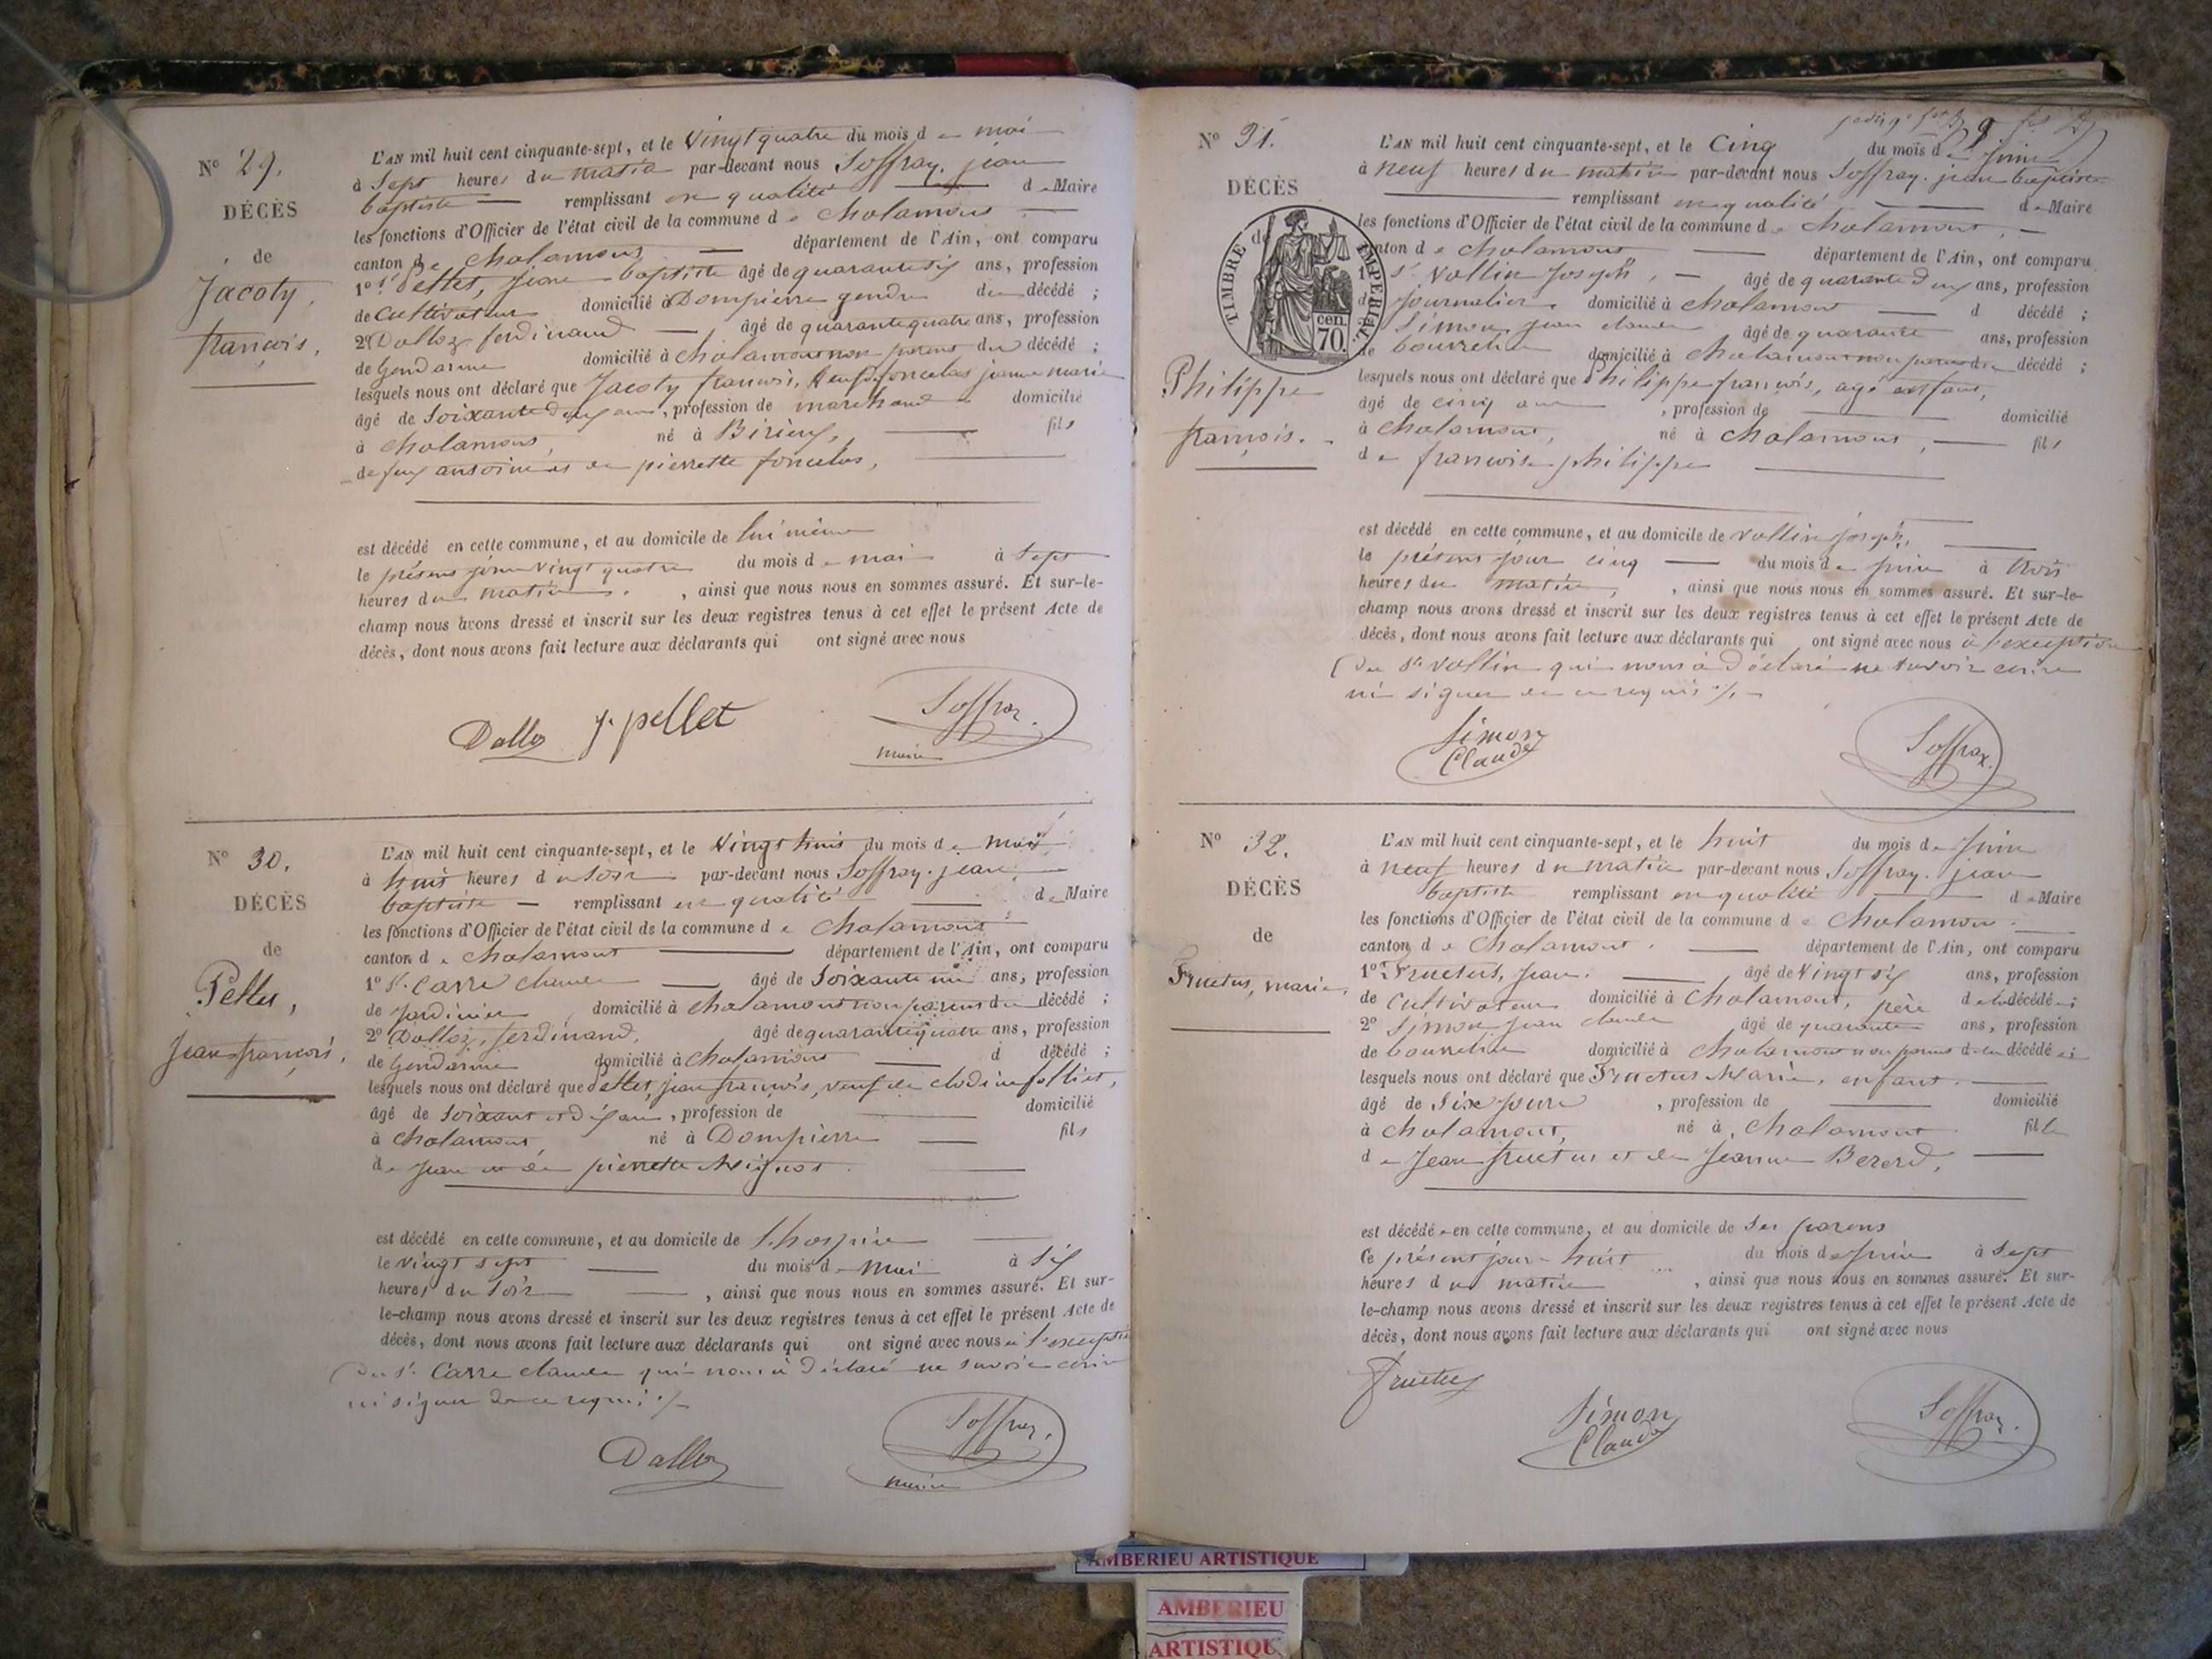 N° 29.
DÉCÈS
de
Jacoty,
françois,
L'AN mil huit cent cinquante-sept, et le Vingt quatre du mois de mai
à Sept heures du matin par-devant nous Soffray, jean
baptiste remplissant en qualité de Maire
les fonctions d'Officier de l'état civil de la commune de chalamont
canton de chalamont département de l'Ain, ont comparu
1° Sr pellet, jean baptiste âgé de quarante six ans, profession
de cultivateur domicilié à Dompierre gendre du décédé ;
2° Dalloz ferdinand âgé de quarante quatre ans, profession
de Gendarme domicilié à chalamont non parent du décédé ;
lesquels nous ont déclaré que Jacoty françois, veuf de foncelas jeanne marie
âgé de Soixante deux ans, profession de marchand domicilié
à chalamont, né à Birieux, fils
de feux antoine et de pierrette foncelas,
est décédé en cette commune, et au domicile de lui même
le présent jour vingt quatre du mois de mai à Sept
heures du matin, ainsi que nous nous en sommes assuré. Et sur-le-
champ nous avons dressé et inscrit sur les deux registres tenus à cet effet le présent Acte de
décès, dont nous avons fait lecture aux déclarants qui ont signé avec nous
Dalloz J. pellet Soffray
maire
N° 30.
DÉCÈS
de
Pellet,
Jean françois,
L'AN mil huit cent cinquante-sept, et le Vingt huit du mois de mai
à huit heures du soir par-devant nous Soffray, jean,
baptiste remplissant en qualité de Maire
les fonctions d'Officier de l'état civil de la commune de chalamont
canton de chalamont département de l'Ain, ont comparu
1° Sr. Carre claude âgé de Soixante un ans, profession
de Jardinier domicilié à chalamont non parent du décédé ;
2° Dalloz, ferdinand, âgé de quarante quatre ans, profession
de Gendarme domicilié à chalamont d décédé ;
lesquels nous ont déclaré que Pellet, jean françois, veuf de clodine folliet,
âgé de Soixante et dix ans, profession de domicilié
à chalamont, né à Dompierre fils
de Jean et de pierrette Mignot.
est décédé en cette commune, et au domicile de l'hospice
le vingt sept du mois de Mai à Six
heures du soir, ainsi que nous nous en sommes assuré. Et sur-
le-champ nous avons dressé et inscrit sur les deux registres tenus à cet effet le présent Acte de
décès, dont nous avons fait lecture aux déclarants qui ont signé avec nous à l'exception
du Sr. Carre claude qui nous à déclaré ne savoir écrire
ni signer de ce requis ./.
Dalloz Soffray
maire
N° 31.
DÉCÈS
de
TIMBRE IMPERIAL
70 cen.
Philippe
françois.
L'AN mil huit cent cinquante-sept, et le Cinq du mois de Juin
à neuf heures du matin par-devant nous Soffray, jean baptiste
remplissant en qualité de Maire
les fonctions d'Officier de l'état civil de la commune de chalamont,
canton de chalamont département de l'Ain, ont comparu
1° Sr Vollin Joseph, âgé de quarante deux ans, profession
de Journalier domicilié à chalamont d décédé ;
2° Simon, jean claude âgé de quarante ans, profession
de bourrelier domicilié à chalamont non parent du décédé ;
lesquels nous ont déclaré que Philippe françois, agé enfant,
âgé de cinq ans, profession de domicilié
à chalamont, né à chalamont, fils
de françoise philippe
est décédé en cette commune, et au domicile de vollin joseph,
le présent jour cinq du mois de Juin à trois
heures du matin, ainsi que nous nous en sommes assuré. Et sur-le-
champ nous avons dressé et inscrit sur les deux registres tenus à cet effet le présent Acte de
décès, dont nous avons fait lecture aux déclarants qui ont signé avec nous à l'exception
du Sr vollin qui nous à déclaré ne savoir écrire
ni signer de ce requis ./.
Simon
Claude Soffray
N° 32.
DÉCÈS
de
Fructus, marie,
L'AN mil huit cent cinquante-sept, et le huit du mois de Juin
à neuf heures du matin par-devant nous Soffray, jean
baptiste remplissant en qualité de Maire
les fonctions d'Officier de l'état civil de la commune de chalamont.
canton de chalamont. département de l'Ain, ont comparu
1° Fructus, Jean. âgé de Vingt six ans, profession
de cultivateur domicilié à chalamont, père de la décédée ;
2° Simon jean claude âgé de quarante ans, profession
de bourrelier domicilié à chalamont non parent de la décédée ;
lesquels nous ont déclaré que Fructus Marie, enfant.
âgé de Six jours, profession de domicilié
à chalamont, né à chalamont fille
de Jean fructus et de Jeanne Berard,
est décédée en cette commune, et au domicile de ses parens
Ce présent jour huit du mois de Juin à Sept
heures du matin, ainsi que nous nous en sommes assuré. Et sur-
le-champ nous avons dressé et inscrit sur les deux registres tenus à cet effet le présent Acte de
décès, dont nous avons fait lecture aux déclarants qui ont signé avec nous
Fructus
Simon
Claude Soffray
AMBERIEU ARTISTIQUE
AMBERIEU
ARTISTIQU